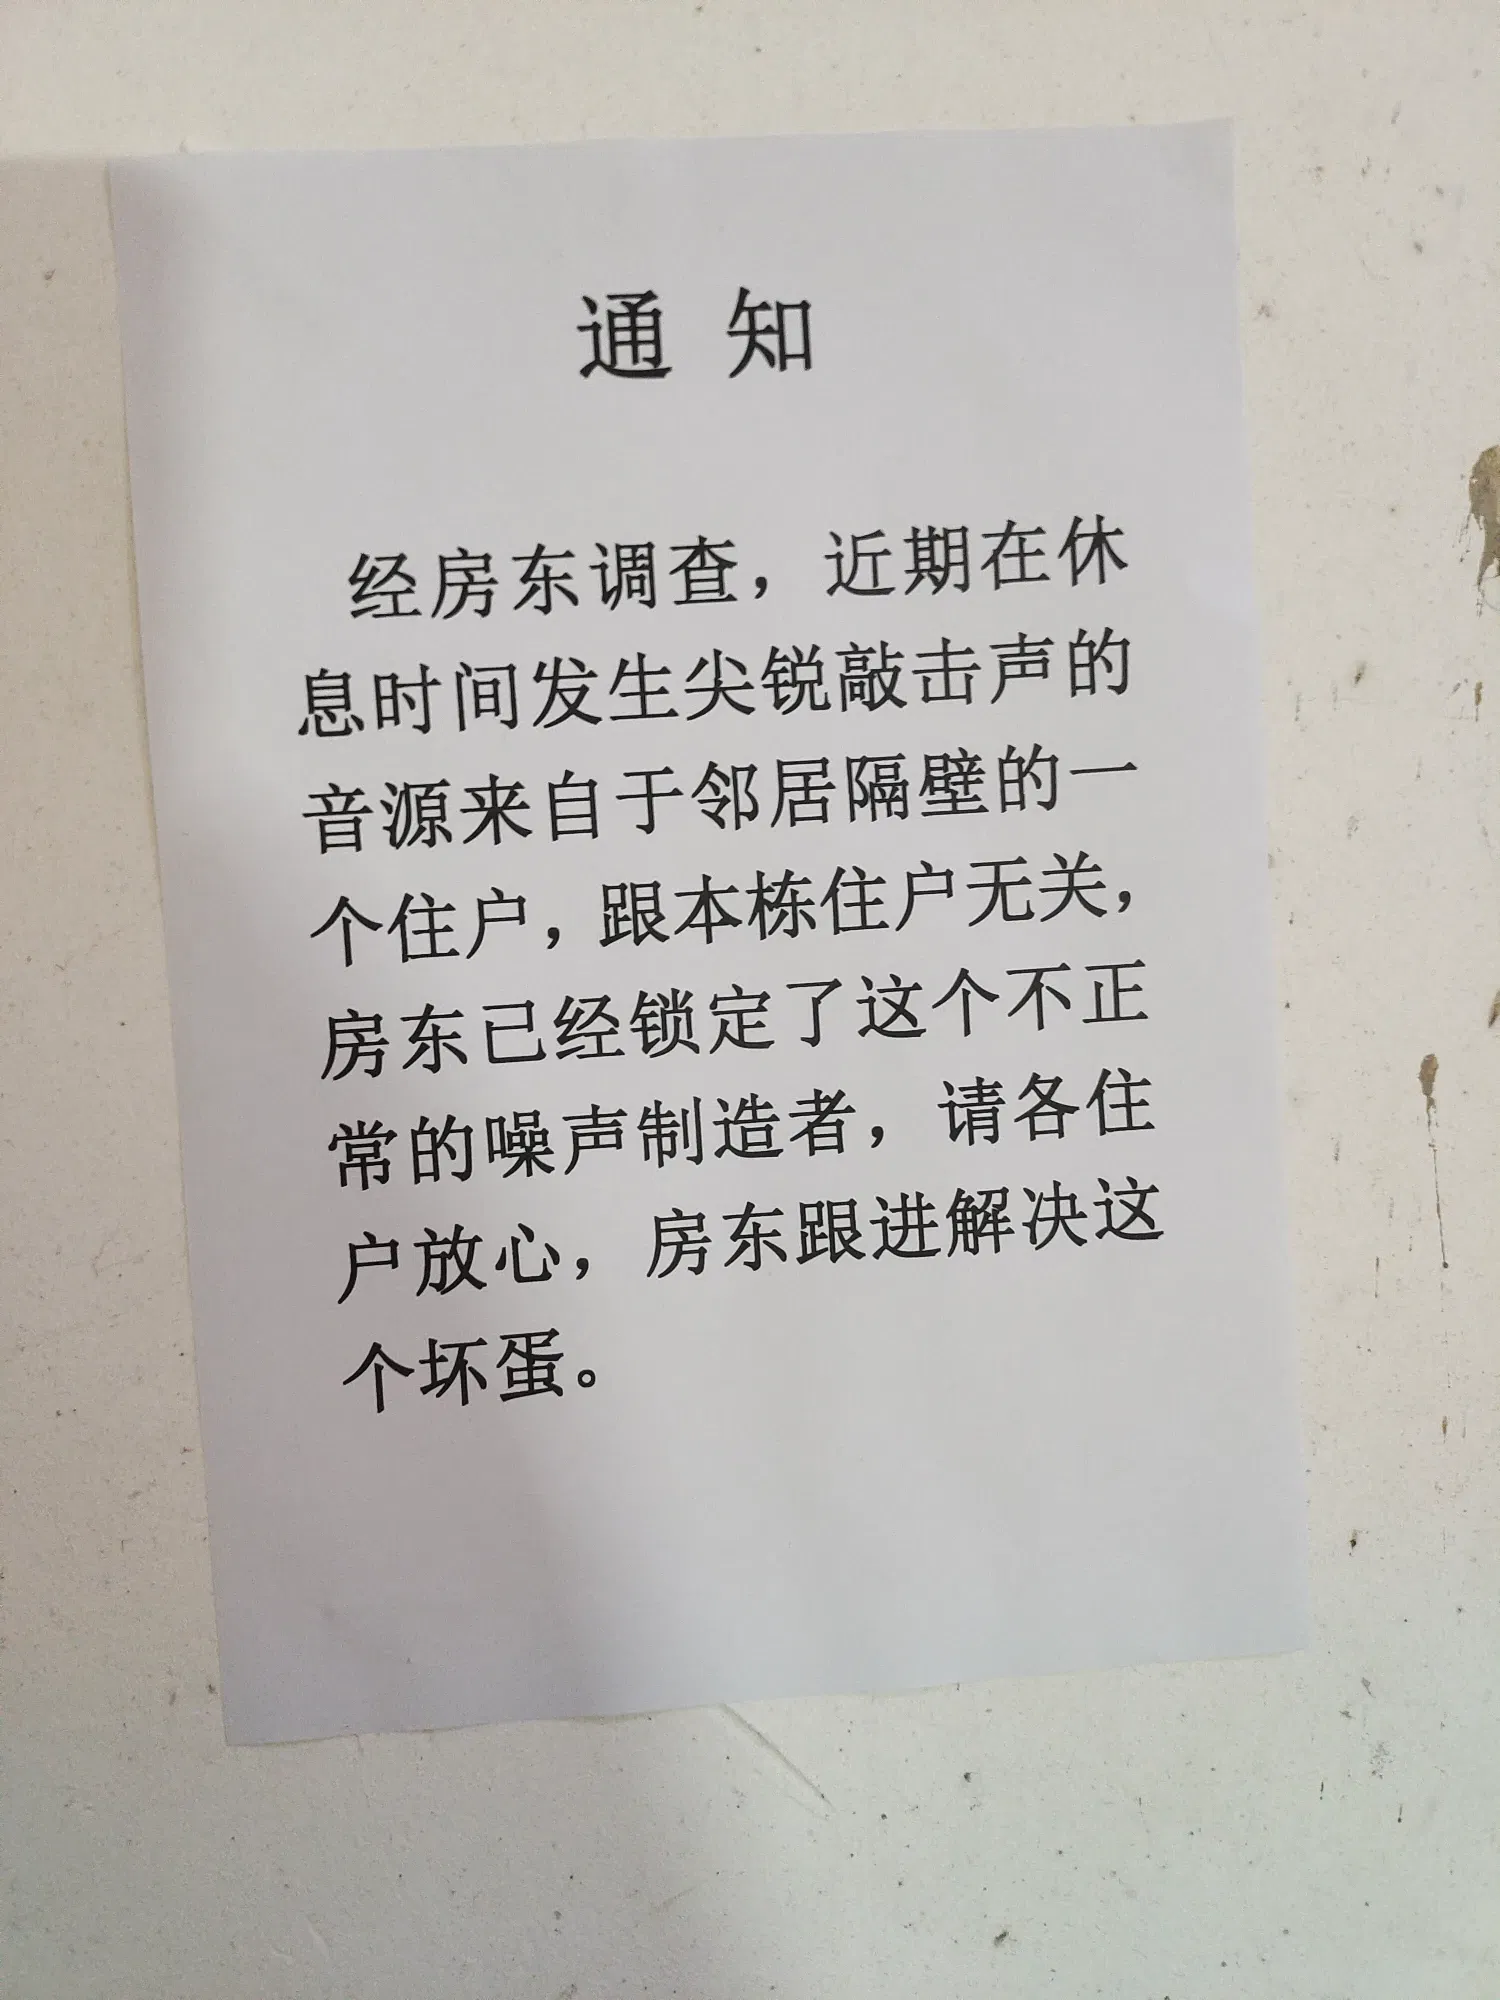 通 知
经房东调查，近期在休
息时间发生尖锐敲击声的
音源来自于邻居隔壁的一
个住户，跟本栋住户无关，
房东已经锁定了这个不正
常的噪声制造者，请各住
户放心，房东跟进解决这
个坏蛋。